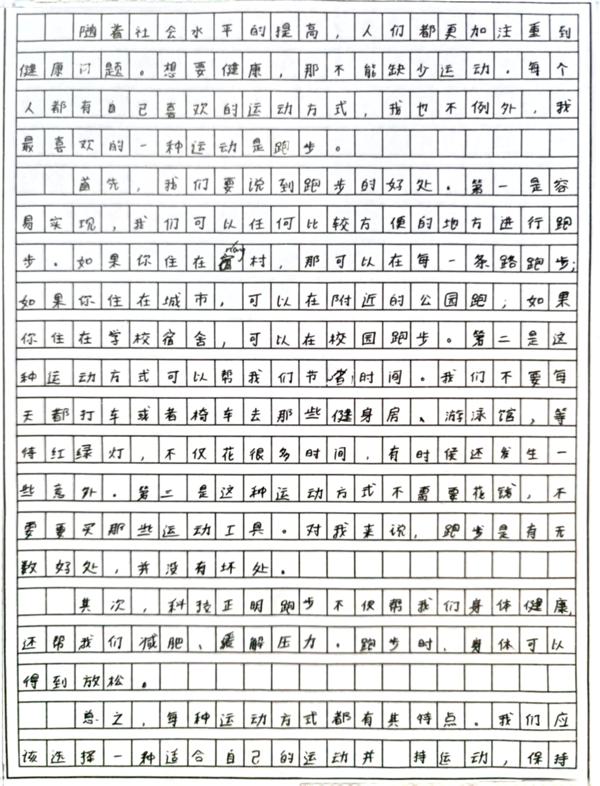 随着社会水平的提高，人们都更加注重到
健康问题。想要健康，那不能缺少运动。每个
人都有自己喜欢的运动方式，我也不例外，我
最喜欢的一种运动是跑步。
首先，我们要说到跑步的好处。第一是容
易实现，我们可以任何比较方便的地方进行跑
步。如果你住在nóng村，那可以在每一条路跑步；
如果你住在城市，可以在附近的公园跑；如果
你住在学校宿舍，可以在校园跑步。第二是这
种运动方式可以帮我们节省时间。我们不要每
天都打车或者椅车去那些健身房、游泳馆，等
待红绿灯，不仅花很多时间，有时侯还发生一
些意外。第二是这种运动方式不需要花钱，不
要要买那些运动工具。对我来说，跑步是有无
数好处，并没有坏处。
其次，科技正明跑步不仅帮我们身体健康，
还帮我们减肥、缓解压力。跑步时，身体可以
得到放松。
总之，每种运动方式都有其特点。我们应
该选择一种适合自己的运动并 持运动，保持